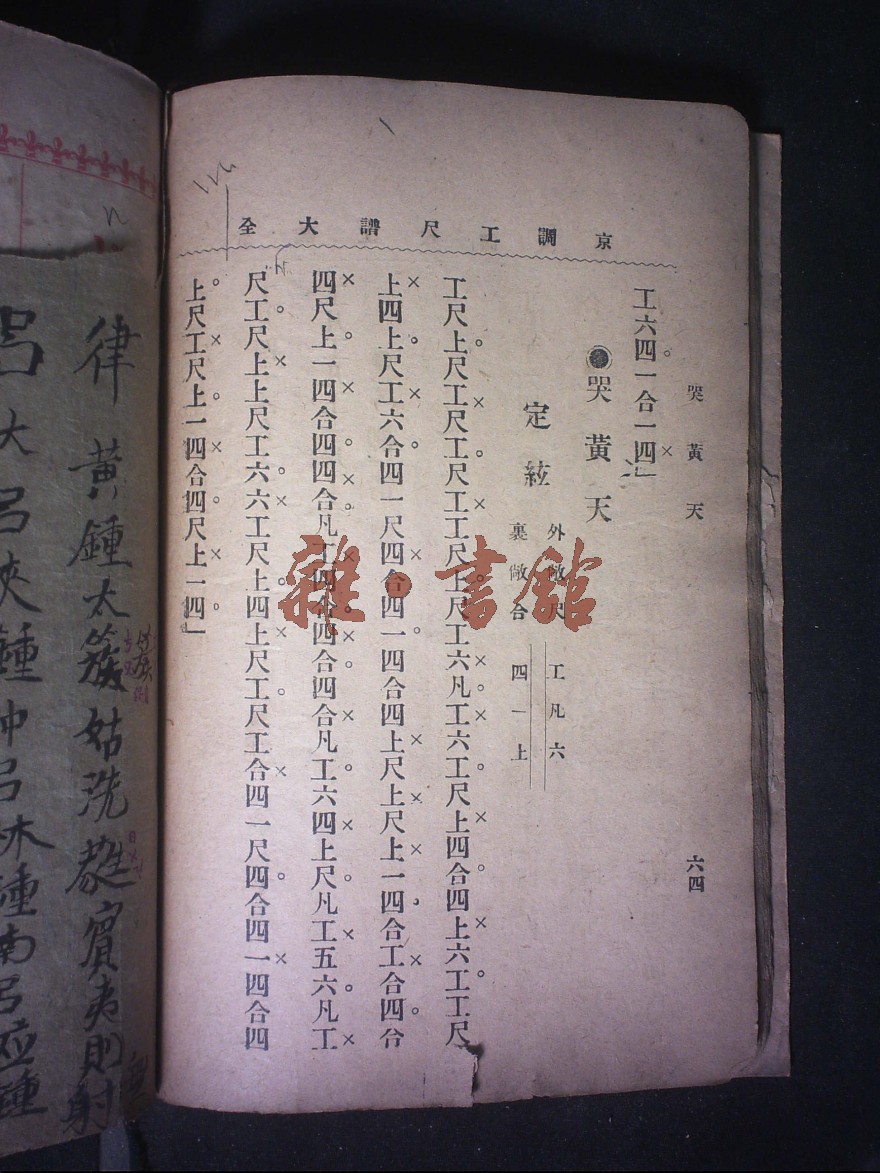 京調工尺譜大全
哭黃天
六四
工六四一合一四」
哭黃天
定絃
外敞尺 工凡六
裏敞合 四一上
工尺上尺工尺工尺工工尺上尺工六凡工六工尺上四合四上六工工尺
上四上尺工六合四一尺四合四一四合四上尺上尺上一四合工合四合
四尺上一四合四四合凡工四合四合四合凡工六四上尺凡工五六凡工
尺工尺上上尺工六六工尺上四上尺工尺工合四一尺四合四一四合四
上尺工尺上一四合四尺上一四」
雜·書館
律黃鍾太簇姑洗蕤賓夷則射
呂大呂夾鍾仲呂林鍾南呂應鍾